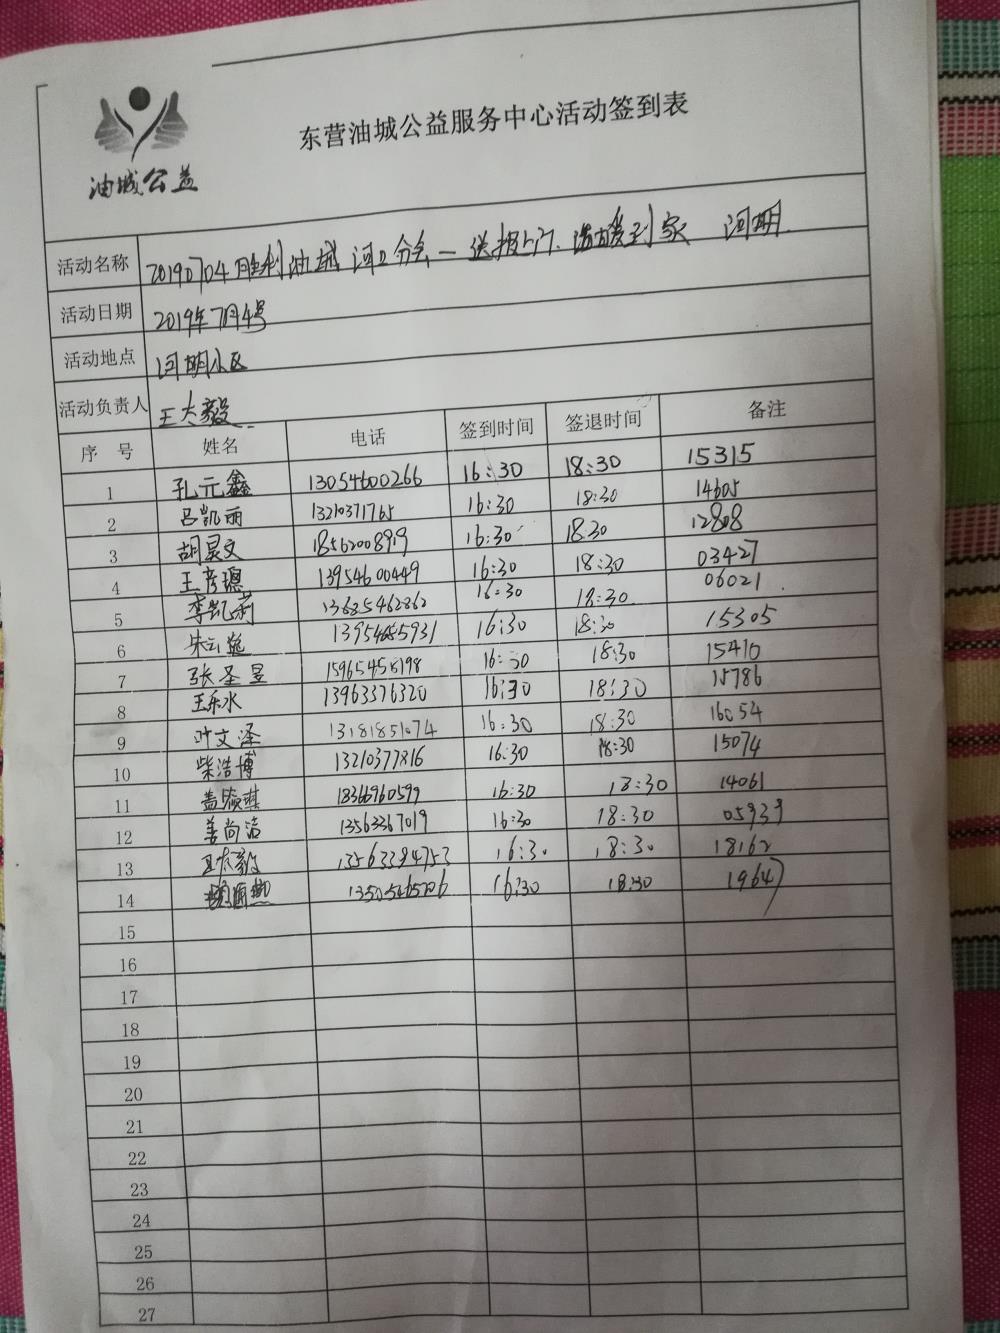 东营油城公益服务中心活动签到表
油城公益
活动名称 20190704胜利油城河口分会—送报上门.温暖到家 河明
活动日期 2019年7月4号
活动地点 河明小区
活动负责人 王大毅
序 号 姓名 电话 签到时间 签退时间 备注
1 孔元鑫 13054600266 16:30 18:30 15315
2 吕凯丽 13210371765 16:30 18:30 14605
3 胡昊文 18562008919 16:30 18:30 12808
4 王彦 13954600449 16:30 18:30 03427
5 李凯莉 13685462862 16:30 18:30 06021
6 朱云 13954655931 16:30 18:30 15305
7 张圣昱 16:30 18:30 15410
8 王乐水 13963376320 16:30 18:30 15786
9 叶文泽 13181851074 16:30 18:30 16054
10 柴浩博 13210377816 16:30 18:30 15074
11 盖 18366960599 16:30 18:30 14061
12 姜尚洁 13563367019 16:30 18:30 05939
13 王大毅 13563384753 16:30 18:30 18162
14 16:30 18:30 19647
15
16
17
18
19
20
21
22
23
24
25
26
27